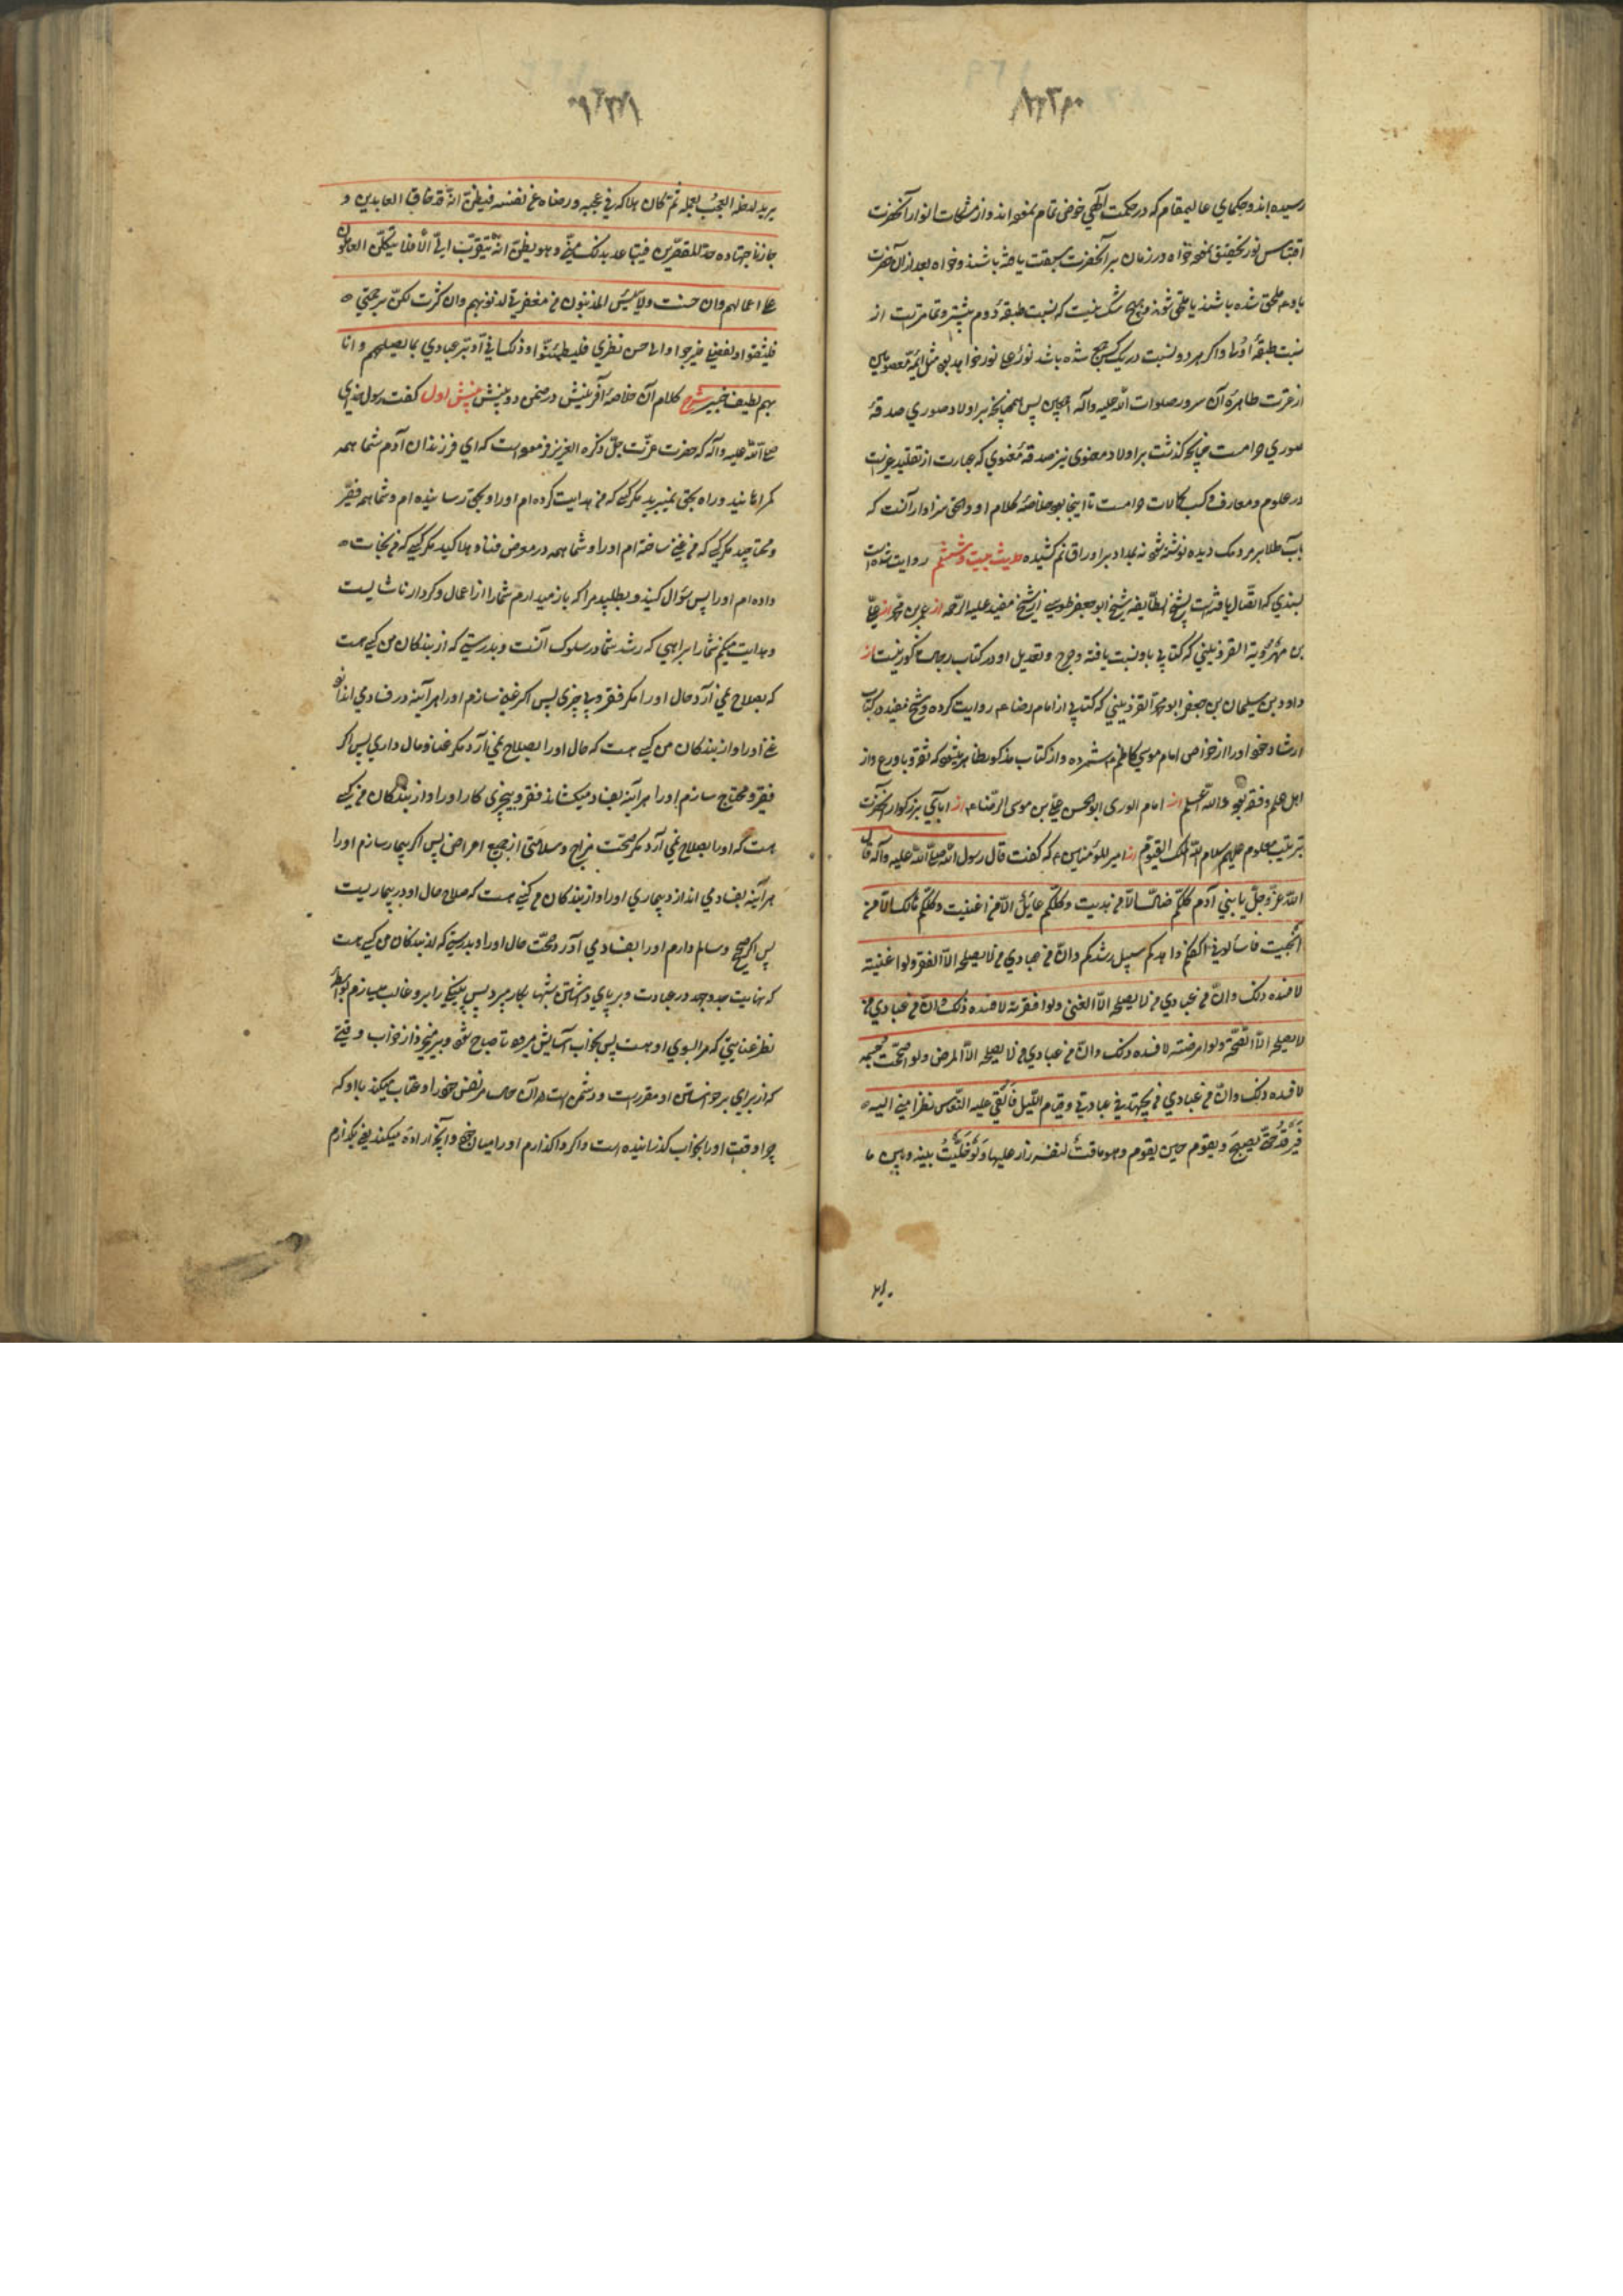 رسیده‌اند و حکمای عالیمقام که در حکمت الهی خوض تمام نموده‌اند و از مشکات انوار آنحضرت
اقتباس نور تحقیق نموده خواه در زمان بر آنحضرت سبقت یافته باشند و خواه بعد از آن حضرت
باو ملحق شده باشند یا ملحق شوند و هیچ شک نیست که نسبت طبقهٔ دوم بیشتر و تمامترست از
نسبت طبقهٔ اولی و اگر هر دو نسبت در یک کس جمع شده باشد نور علی نور خواهد بود مثل ائمه معصومین
از عترت طاهرهٔ آن سرور صلوات الله علیه و آله اجمعین پس همچنانچه بر اولاد صوری صدقهٔ
صوری حرامست چنانچه گذشت بر اولاد معنوی نیز صدقهٔ معنوی که عبارت از تقلید غیرست
در علوم و معارف و کسب کمالات حرامست تا اینجا بود خلاصهٔ کلام او و الحق سزاوار آنست که
بآب طلا بر مردمک دیده نوشته شود نه بمداد بر اوراق نم کشیده حدیث بیست و ششم روایت شده است
بسندی که اتصال یافته است بشیخ الطایفه شیخ ابو جعفر طوسی از شیخ مفید علیه الرحمه از عمر بن محمد از علی
بن مهرویه القزوینی که کتابی باو نسبت یافته و جرح و تعدیل او در کتاب رجال مذکور نیست از
داود بن سلیمان بن جعفر ابو محمد القزوینی که کتابی از امام رضا ع روایت کرده و شیخ مفید در کتاب
ارشاد خود او را از خواص امام موسی کاظم ع شمرده و از کتاب مذکور ظاهر میشود که ثقه و با ورع و از
اهل علم و فقه بود والله اعلم از امام الوری ابو الحسن علی بن موسی الرضا ع از آبای بزرگوار آنحضرت
بترتیب معلوم علیهم سلام الله الملک القیوم از امیر المؤمنین ع که گفت قال رسول الله صلی الله علیه و آله قال
الله عز و جل یا بنی آدم کلکم ضال الا من هدیت و کلکم عائل الا من اغنیت و کلکم هالک الا من
انجیت فاسألونی اکفکم و اهدکم سبیل رشدکم و ان من عبادی من لا یصلحه الا الفقر و لو اغنیته
لافسده ذلک و ان من عبادی من لا یصلحه الا الغنی و لو افقرته لافسده ذلک و ان من عبادی من
لا یصلحه الا الصحة و لو امرضته لافسده ذلک و ان من عبادی من لا یصلحه الا المرض و لو اصححت جسمه
لافسده ذلک و ان من عبادی من یجتهد فی عبادتی و قیام اللیل فَاُلقی علیه النعاس نظرا منی الیه
فَیَرقُدُ حتی یصبحَ و یقوم حین یقوم و هو ماقت لنفسه زار علیها وَ لَو خَلَّیتُ بینه و بین ما
یرید لدخله العجبُ بعمله ثم کان هلاکه فی عجبه و رضاه عن نفسه فیظن انه قد فاق العابدین و
جاز باجتهاده حد المقصرین فیتباعد بذلک منی و هو یظن انه یتقرب الی الا فلا یتکل العاملون
علی اعمالهم و ان حسنت و لا ییئس المذنبون من مغفرتی لذنوبهم و ان کثرت لکن برحمتی
فلیثقوا و لفضلی فلیرجوا و الی حسن نظری فلیطمئنوا و ذلک انی ادبر عبادی بما یصلحهم و انا
بهم لطیف خبیر شرح کلام آن خلاصهٔ آفرینش در ضمن دو بینش بینش اول گفت رسول خدای
صلی الله علیه و آله که حضرت عزت جل ذکره العزیز فرموده است که ای فرزندان آدم شما همه
گمراهانید و راه بحق نمیبرید مگر کسی که من هدایت کرده‌ام او را و بحق رسانیده‌ام و شما همه فقیر
و محتاجید مگر کسی که من غنی ساخته‌ام او را و شما همه در معرض فنا و هلاکید مگر کسی که من نجات
داده‌ام او را پس سؤال کنید و بطلبید مرا که باز میدارم شما را از اعمال و کردار ناشایست
و هدایت میکنم شما را براهی که رشد شما در سلوک آنست و بدرستی که از بندگان من کسی هست
که بصلاح نمی‌آرد حال او را مگر فقر و بی چیزی پس اگر غنی سازم او را هر آینه در فسادی اندازد
غنا او را و از بندگان من کسی هست که حال او را بصلاح نمی‌آرد مگر غنا و مال داری پس اگر
فقیر و محتاج سازم او را هر آینه بفساد میکشاند فقر و بیچیزی کار او را و از بندگان من کسی
هست که او را بصلاح نمی‌آرد مگر صحت مزاج و سلامتی از جمیع امراض پس اگر بیمار سازم او را
هر آینه بفسادی اندازد بیماری او را و از بندگان من کسی هست که صلاح حال او در بیماریست
پس اگر صحیح و سالم دارم او را بفسادی آرد صحت حال او را و بدرستی که از بندگان من کسی هست
که نهایت جد و جهد در عبادت و بر پای داشتن شبها بکار میبرد پس پینکی را برو غالب میسازم بواسطهٔ
نظر عنایتی که مرا بسوی او هست پس بخواب آسایش میرود تا صباح شود و بر میخیزد از خواب وقتی
که از برای برخواستن او مقررست و دشمن است در آن حال مر نفس خود را و عتاب میکند با او که
چرا وقت او را بخواب گذرانیده است و اگر واگذارم او را میان خود و آنچه اراده میکند یعنی بگذارم